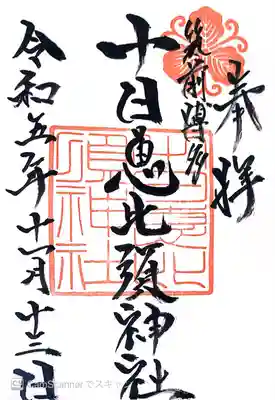 奉拝
筑前博多
十日恵比須神社
令和五年十一月十三日
CamScannerでスキャン